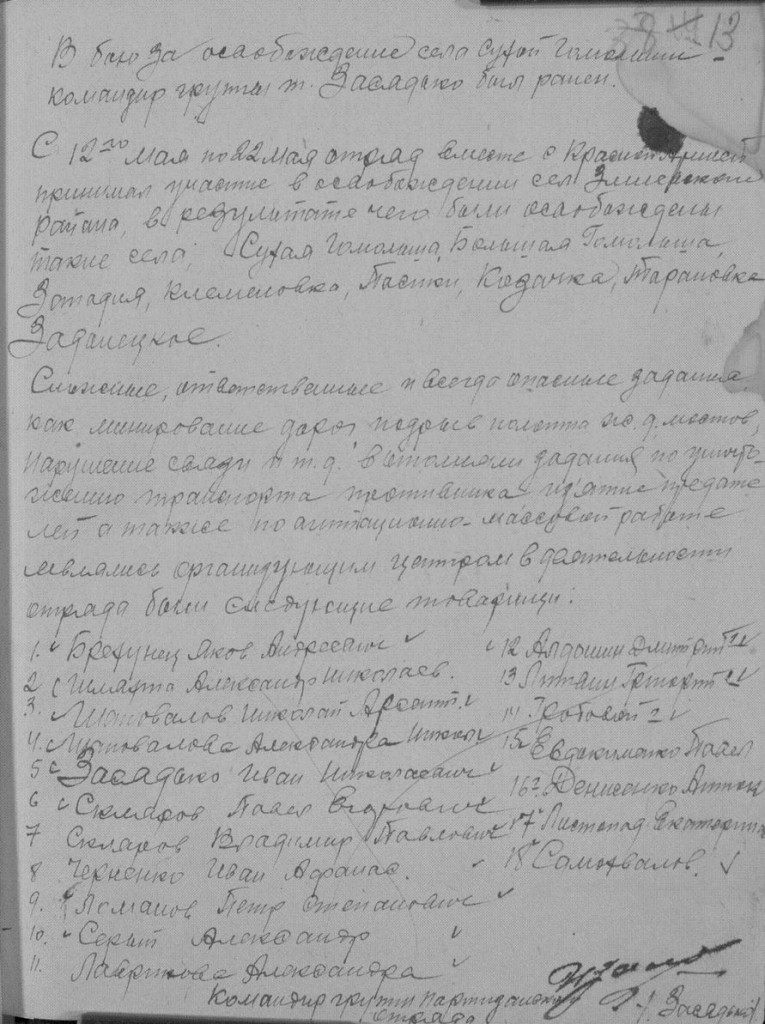 13
В бою за освобождение села Сухой Гомольши -
командир группы т. Засядько был ранен.
С 12го Мая по 22 Мая отряд вместе с Красной Армией
принимал участие в освобождении сел Змиевского
района, в результате чего были освобождены
такие села, Сухая Гомольша, Большая Гомольша,
Западня, Клеменовка, Пасеки, Козачка, Тарановка
Задонецкое.
Сложные, ответственные и всегда опасные задания,
как минирование дорог подрыв полотна ж.д. мостов,
нарушение связи и т.д. выполняли задания по уничто-
жению транспорта противника из'ятие предате
лей а также по агитационно-массовой работе
являлись организующим центром в деятельности
отряда были следующие товарищи:
1. Брехунец Яков Андреевич
2 Шляхта Александр Николаев.
3. Шаповалов Николай Арсент.
4. Шаповалова Александра Никол
5 Засядько Иван Николаевич
6 Скляров Павел Егорович
7 Скляров Владимир Павлович
8 Черненко Иван Афанас.
9. Ломанов Петр Степанович
10. Серый Александр
11. Лавринова Александра
12 Алдошин Дмитрий
13 Литвин Григорий
14 Гробовой
15 Евдокименко Павел
16 Денисенко Антон
17 Листопад Екатерина
18 Самохвалов.
Командир группы партизанского
отряда Засядько